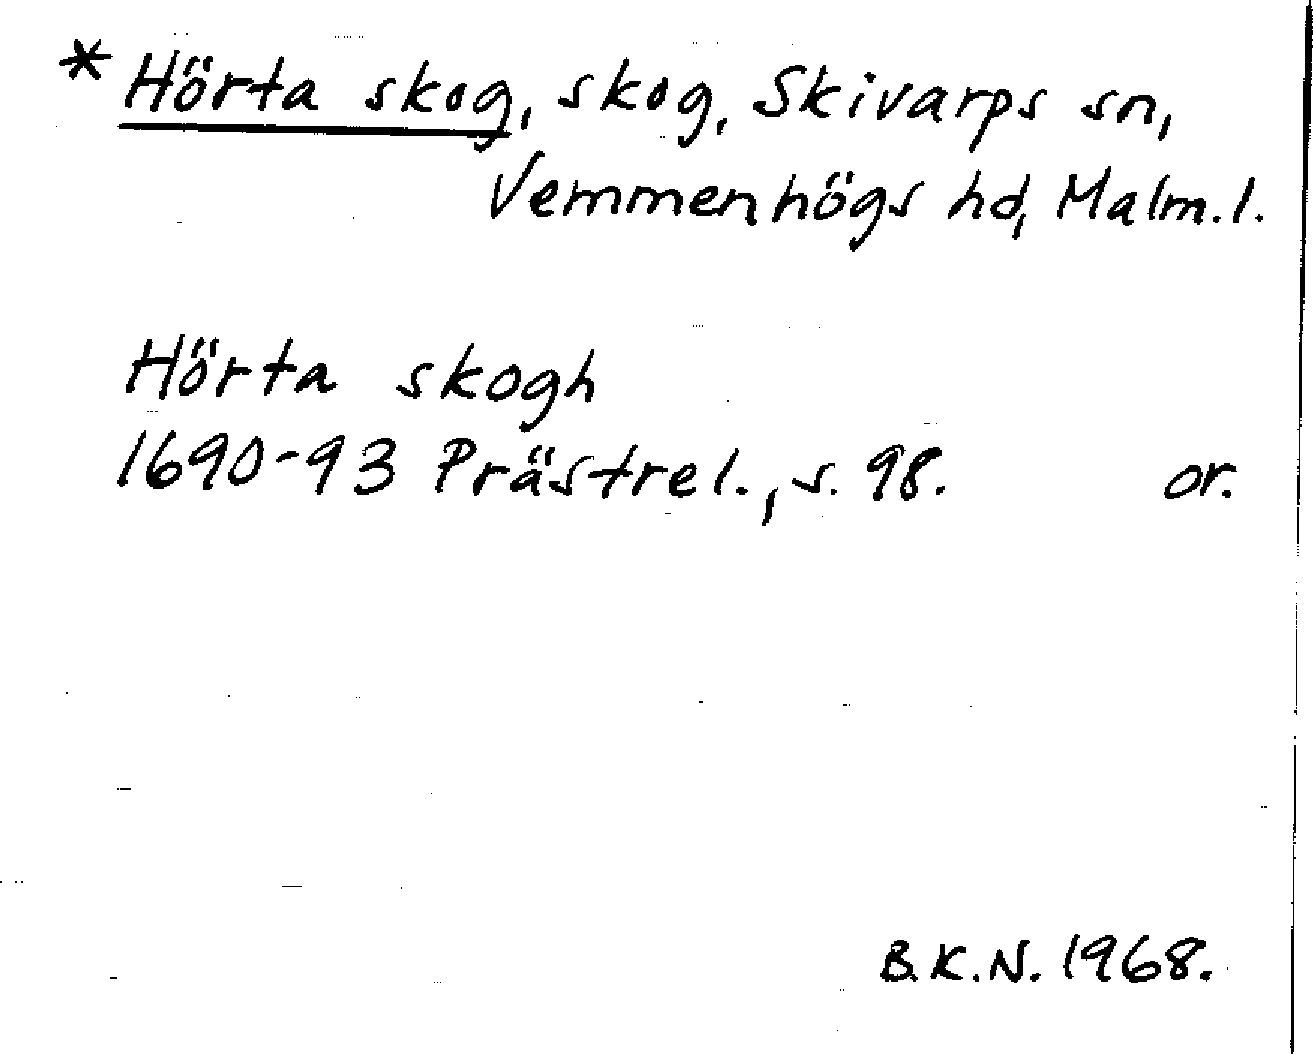 * Hörta skog, skog, Skivarps sn,
Vemmenhögs hd, Malm.l.
Hörta skogh
1690-93 Prästrel., s. 98. or.
B.K.N. 1968.